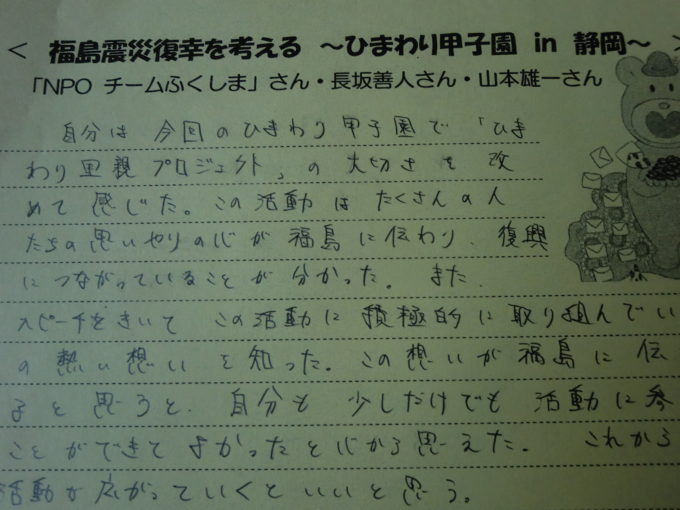 < 福島震災復幸を考える ～ひまわり甲子園 in 静岡～ >
「NPO チームふくしま」さん・長坂善人さん・山本雄一さん
自分は 今回のひまわり甲子園で「ひま
わり里親プロジェクト」の大切さを改
めて感じた。この活動はたくさんの人
たちの思いやりの心が福島に伝わり、復興
につながっていることが分かった。また、
スピーチをきいて この活動に積極的に取り組んでい
の熱い想いを知った。この想いが福島に伝
ると思うと、自分も少しだけでも活動に参
ことができてよかったと心から思えた。 これから
活動が広がっていくといいと思う。